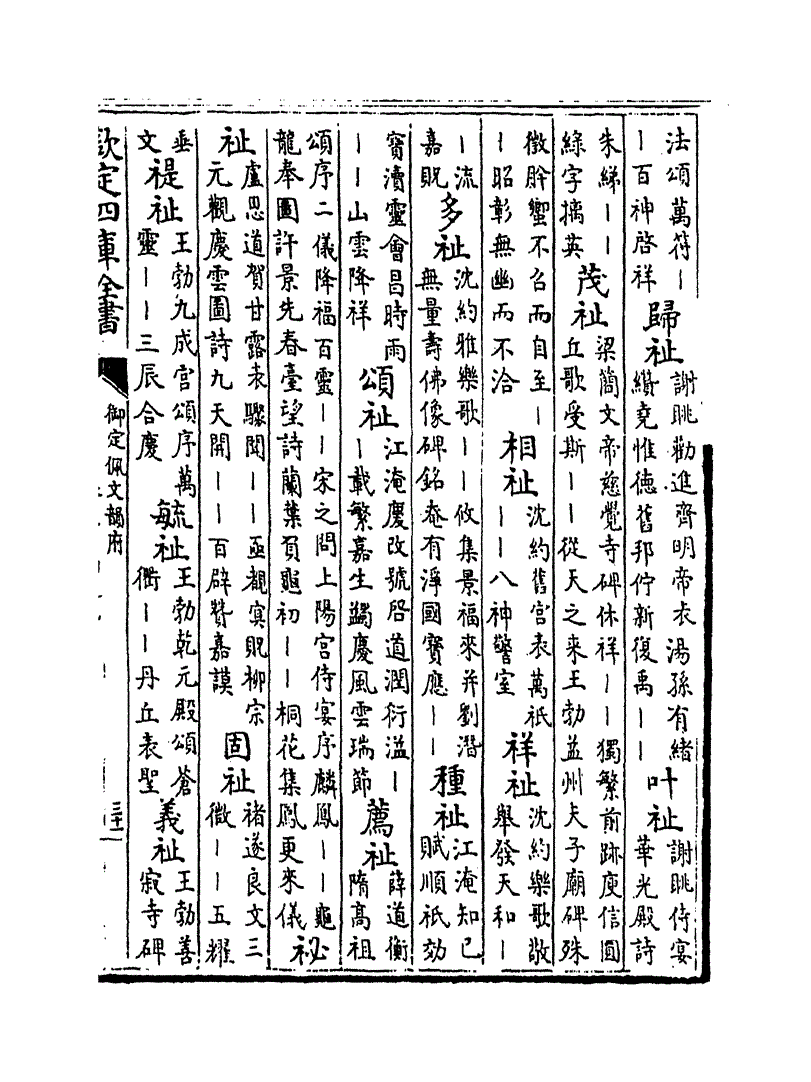 法頌萬符｜
｜百神啓祥
歸祉
謝朓勸進齊明帝表湯孫有緒
纘堯惟德舊邦佇新復禹｜｜
叶祉
謝朓侍宴
華光殿詩
朱綈｜｜
綠字摛英
茂祉
梁簡文帝慈覺寺碑休祥｜｜獨繁前跡庾信圓
丘歌受斯｜｜從天之来王勃益州夫子廟碑殊
徵肸蠁不召而自至｜
｜昭彰無幽而不洽
相祉
沈約舊宮表萬祇
｜｜八神警室
祥祉
沈約樂歌敬
舉發天和｜
｜流
嘉貺
多祉
沈約雅樂歌｜｜攸集景福來并劉潛
無量壽佛像碑銘奄有淨國寶應｜｜
種祉
江淹知己
賦順祇効
寶瀆靈會昌時雨
｜｜山雲降祥
頌祉
江淹慶改號啓道潤衍溢｜
｜載繁嘉生蠲慶風雲瑞節
薦祉
薛道衡
隋高祖
頌序二儀降福百靈｜｜宋之問上陽宮侍宴序麟鳳｜｜龜
龍奉圖許景先春臺望詩蘭葉負龜初｜｜桐花集鳳更來儀
祕
祉
盧思道賀甘露表驟聞｜｜亟覩冥貺柳宗
元觀慶雲圖詩九天開｜｜百辟贊嘉謨
固祉
褚遂良文三
徵｜｜五耀
垂
文
禔祉
王勃九成宮頌序萬
靈｜｜三辰合慶
毓祉
王勃乾元殿頌蒼
衢｜｜丹丘表聖
義祉
王勃善
寂寺碑
欽定四庫全書
御定佩文韻府